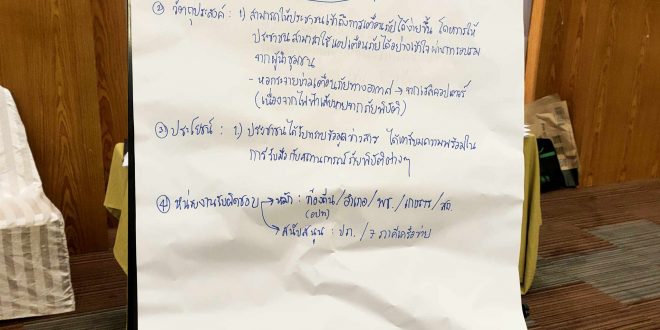 ② วัตถุประสงค์ : 1) สามารถให้ประชาชนเข้าถึงการเตือนภัยได้ง่ายขึ้น โดยการให้
ประชาชนสามารถใช้แอปเตือนภัยได้อย่างเข้าใจผ่านการอบรม
จากผู้นำชุมชน
- หอกระจายข่าวเตือนภัยทางอากาศ → จากเฮลิคอปเตอร์
(เนื่องจากไฟฟ้าเสียหายจากภัยพิบัติ)
③ ประโยชน์ : 1.) ประชาชนได้รับทราบข้อมูลข่าวสาร ได้เตรียมความพร้อมใน
การรับมือกับสถานการณ์ภัยพิบัติต่างๆ
④ หน่วยงานรับผิดชอบ → หลัก : ท้องถิ่น/อำเภอ/พช./เกษตร/
(อปท)
→ สนับสนุน : ปภ. / 7 ภาคีเครือข่าย